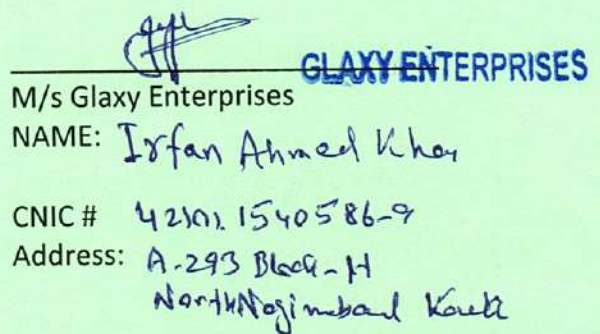 GLAXY ENTERPRISES
M/s Glaxy Enterprises
NAME: Irfan Ahmed Khan
CNIC # 42101.1540586-9
Address: A-293 Block-H
North Nazimabad